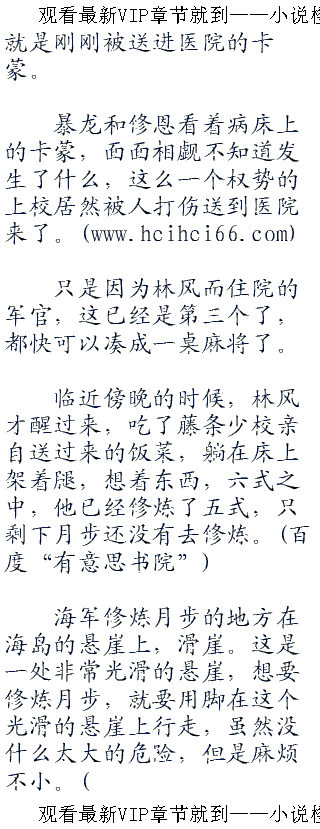 观看最新VIP章节就到——小说检
就是刚刚被送进医院的卡
蒙。
暴龙和修恩看着病床上
的卡蒙，面面相觑不知道发
生了什么，这么一个权势的
上校居然被人打伤送到医院
来了。(www.hcihci66.com)
只是因为林风而住院的
军官，这已经是第三个了，
都快可以凑成一桌麻将了。
临近傍晚的时候，林风
才醒过来，吃了藤条少校亲
自送过来的饭菜，躺在床上
架着腿，想着东西，六式之
中，他已经修炼了五式，只
剩下月步还没有去修炼。(百
度“有意思书院”)
海军修炼月步的地方在
海岛的悬崖上，滑崖。这是
一处非常光滑的悬崖，想要
修炼月步，就要用脚在这个
光滑的悬崖上行走，虽然没
什么太大的危险，但是麻烦
不小。(
观看最新VIP章节就到——小说检